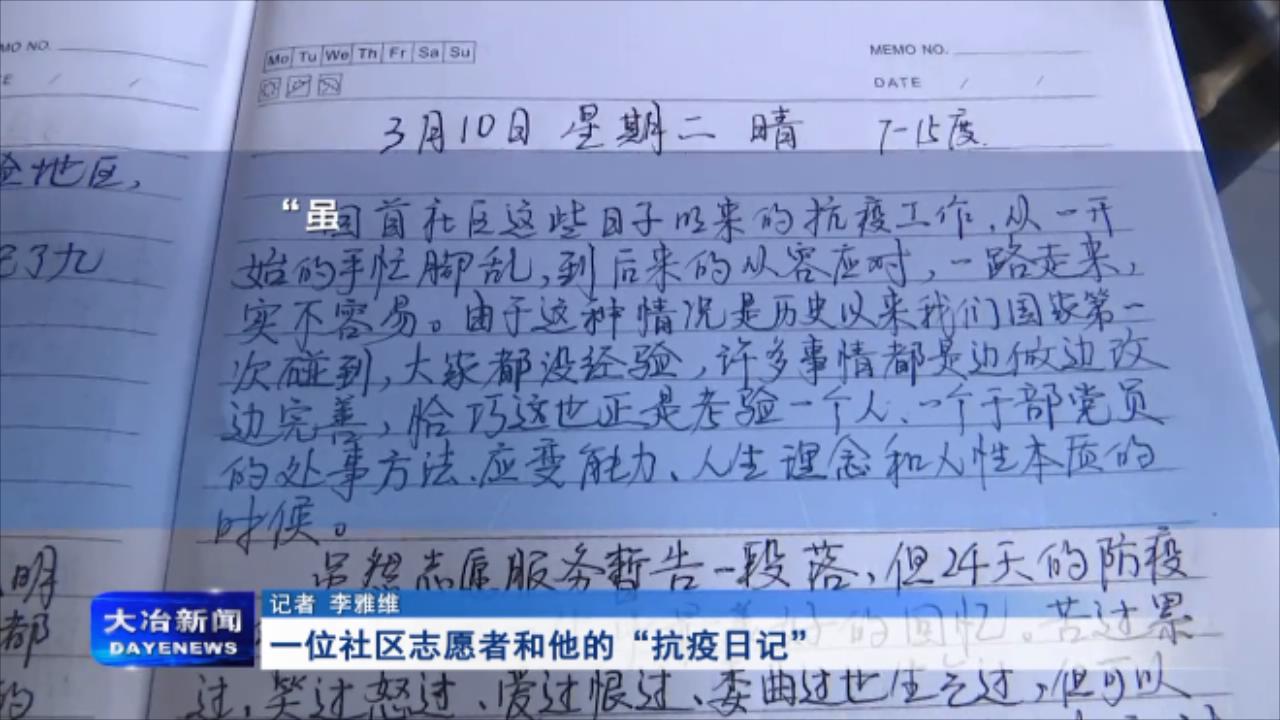 MO NO.
Mo Tu We Th Fr Sa Su
MEMO NO.
DATE / /
3月10日 星期二 晴 7-15度
地区,
了九
“虽
回首社区这些日子以来的抗疫工作,从一开
始的手忙脚乱,到后来的从容应对,一路走来,
实不容易。由于这种情况是历史以来我们国家第一
次碰到,大家都没经验,许多事情都是边做边改
边完善,恰巧这也正是考验一个人、一个干部党员
的处事方法、应变能力、人生理念和人性本质的
时候。
虽然志愿服务暂告一段落,但24天的防疫
明
都
的
的回忆。苦过累
过,笑过怒过、爱过恨过、委曲过也生气过,但可以
大冶新闻
DAYENEWS
记者 李雅维
一位社区志愿者和他的“抗疫日记”